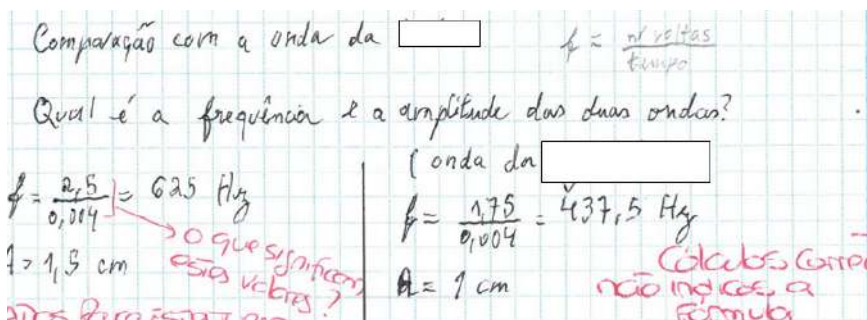 Comparação com a onda da
f = nº voltas / tempo
Qual é a frequência e a amplitude das duas ondas?
f = 2,5 / 0,004 = 625 Hz
= 1,5 cm
O que significam estes valores?
( onda da
f = 1,75 / 0,004 = 437,5 Hz
A = 1 cm
Cálculos
não indicas a
fórmula